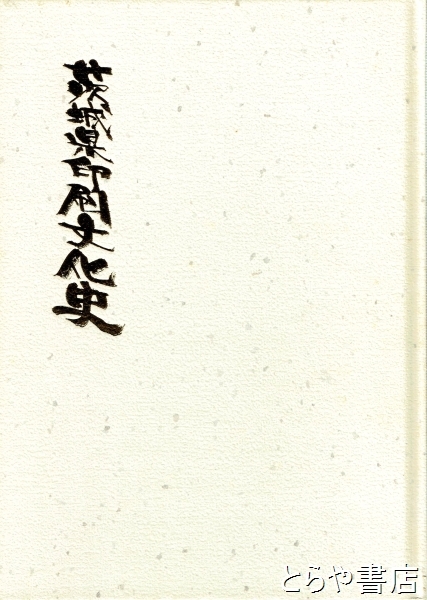 茨城県印刷文化史
とらや書店